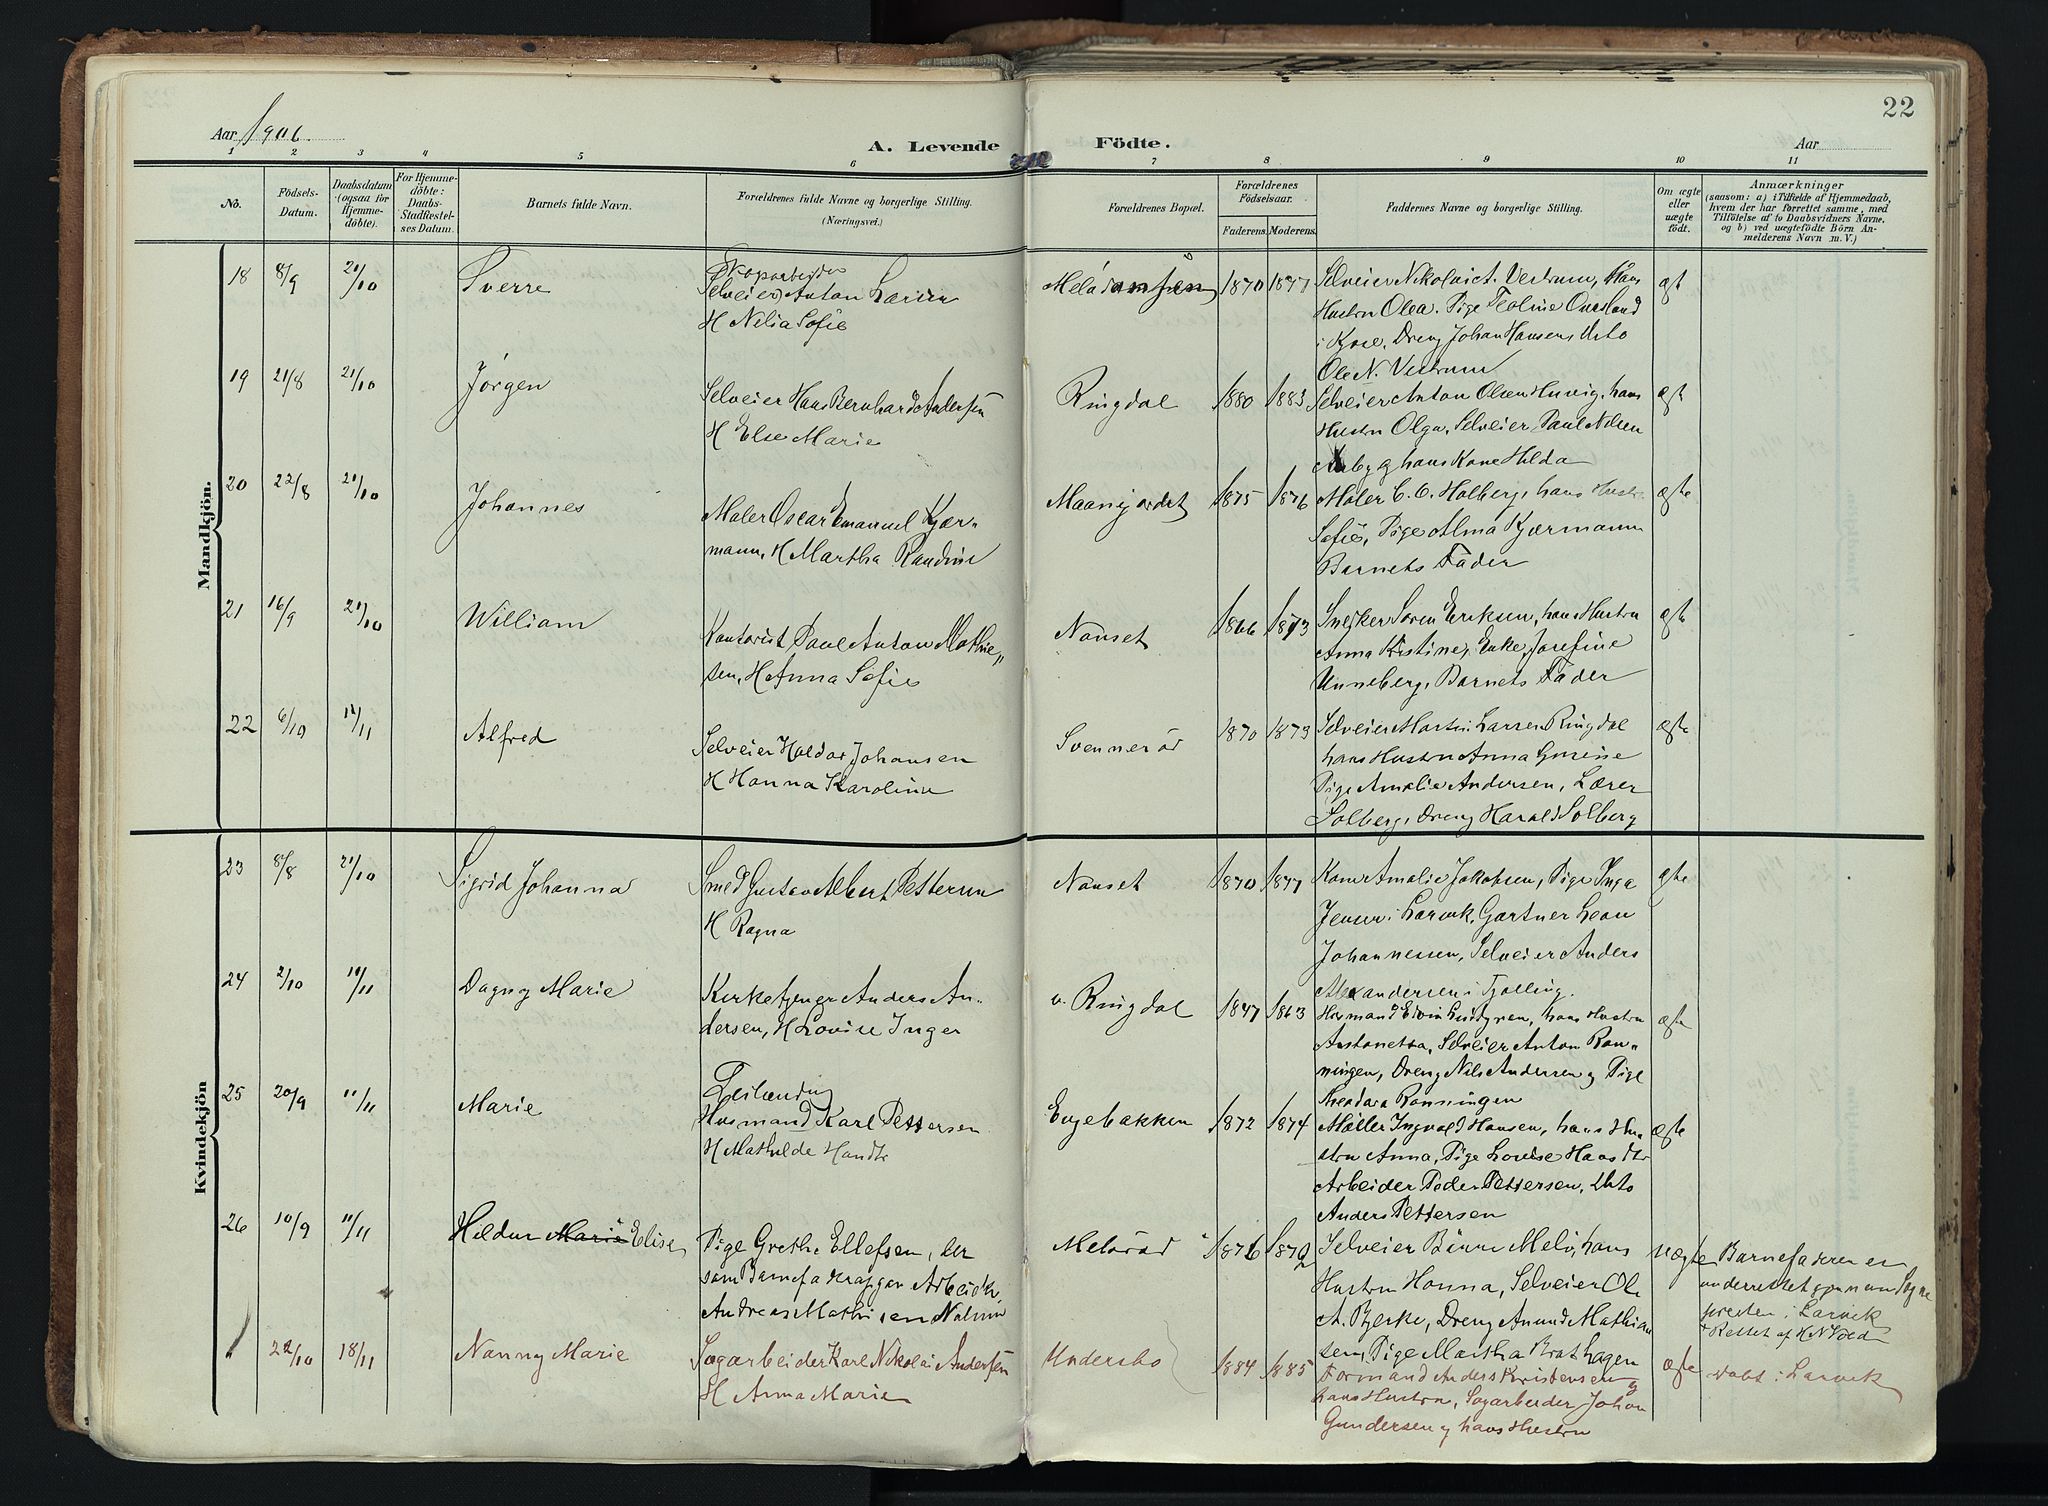 22
Aar 1906.
A. Levende Födte.
Aar
1 2 3 4 5 6 7 8 9 10 11
No.
Födsels-
Datum.
Daabsdatum
(ogsaa for
Hjemme-
döbte).
For Hjemme-
döbte:
Daabs-
Stadfæstel-
ses Datum.
Barnets fulde Navn.
Forældrenes fulde Navne og borgerlige Stilling.
(Næringsvei.)
Forældrenes Bopæl.
Forældrenes
Födselsaar.
Faderens. Moderens.
Faddernes Navne og borgerlige Stilling.
Om ægte
eller
uægte
födt.
Anmærkninger
(saasom: a) i Tilfælde af Hjemmedaab,
hvem der har forrettet samme, med
Tilföielse af to Daabsvidners Navne,
og b) ved uægtefödte Börn An-
melderens Navn m. V.)
Mandkjön.
18 8/9 21/10 Sverre
Selveier Anton Larsen
H Nilia Sofie
1870 1877
Selveier Nikolai A. Vestrum, hans
Hustru Olea. Pige Teoline Overland
i Kjose, Dreng Johan Hansen, Ditto
Ole N. Vestrum
ægt
19 21/8 21/10 Jörgen
Selveier Hans Bernhard Andersen
H Else Marie
Ringdal 1880 1883
Selveier Anton Olsen Huvig, hans
Hustru Olga, Selveier Paul Nilsen
Aaby og hans Kone Hilda
ægt
20 22/8 21/10 Johannes
Maler Oscar Emanuel Kjær-
mann, H Martha Randine
Maanejordet 1875 1876
Maler C. C. Holberg, hans Hustru
Sofie, Pige Alma Kjærmann
Barnets Fader
ægte
21 16/9 21/10 William
Kontorist Paul Anton Mathie-
sen, H Anna Sofie
Nanset 1866 1873
Snejker Sören Eriksen, hans Hustru
Anna Kristine, Enke Josefine
Unneberg, Barnets Fader
ægte
22 6/10 11/11 Alfred
Selveier Haldor Johansen
H Hanna Karoline
Svenneröd 1870 1873
Selveier Martin Larsen Ringdal
hans Hustru Anna Gurine
Pige Amalie Andersen, Lærer
Solberg, Dreng Harald Solberg
ægte
Kvindekjön
23 8/8 21/10 Sigrid Johanna
Smed Gustav Albert Pettersen
H Ragna
Nanset 1870 1877
Kone Amalie Jakobsen, Pige Inga
Jensen i Larvik, Gartner Leon
Johannessen, Selveier Anders
Alexandersen i Tjølling.
ægte
24 2/10 11/11 Dagny Marie
Kirketjener Anders An-
dersen, H Lovise Inger
v. Ringdal 1847 1863
Husmand Edvin Lindgren, hans Hustru
Antonetta, Selveier Anton Ron-
ningen, Dreng Nils Andersen og Pige
Theodora Ronningen
ægte
25 20/9 11/11 Marie
Leilænding
Husmand Karl Pettersen
H Mathilde Hansdtr
Engebakken 1872 1874
Møller Ingvald Hansen, hans Hu-
stru Anna, Pige Lovise Hansdtr
Arbeider Peder Pettersen, Ditto
Anders Pettersen
ægte
26 10/9 11/11 Hildur Marie Elise
Pige Grethe Ellefsen, der
som Barnefader opgav Arbeider
Andreas Mathisen
Melöröd 1876 1872
Selveier Bürre Melö, hans
Hustru Hanna, Selveier Ole
A. Bjerke, Dreng Amund Mathian
sen, Pige Martha Brathagen
uægte
Barnefaderen er
underrettet gjennem Sogne
presten i Larvik
22/10 18/11 Nanny Marie
Sagarbeider Karl Nikolai Andersen
H Anna Marie
Undersbo 1884 1885
Formand Anders Kristensen og
hans Hustru, Sagarbeider Johan
Gundersen og hans Hustru
ægte
Døbt i Larvik